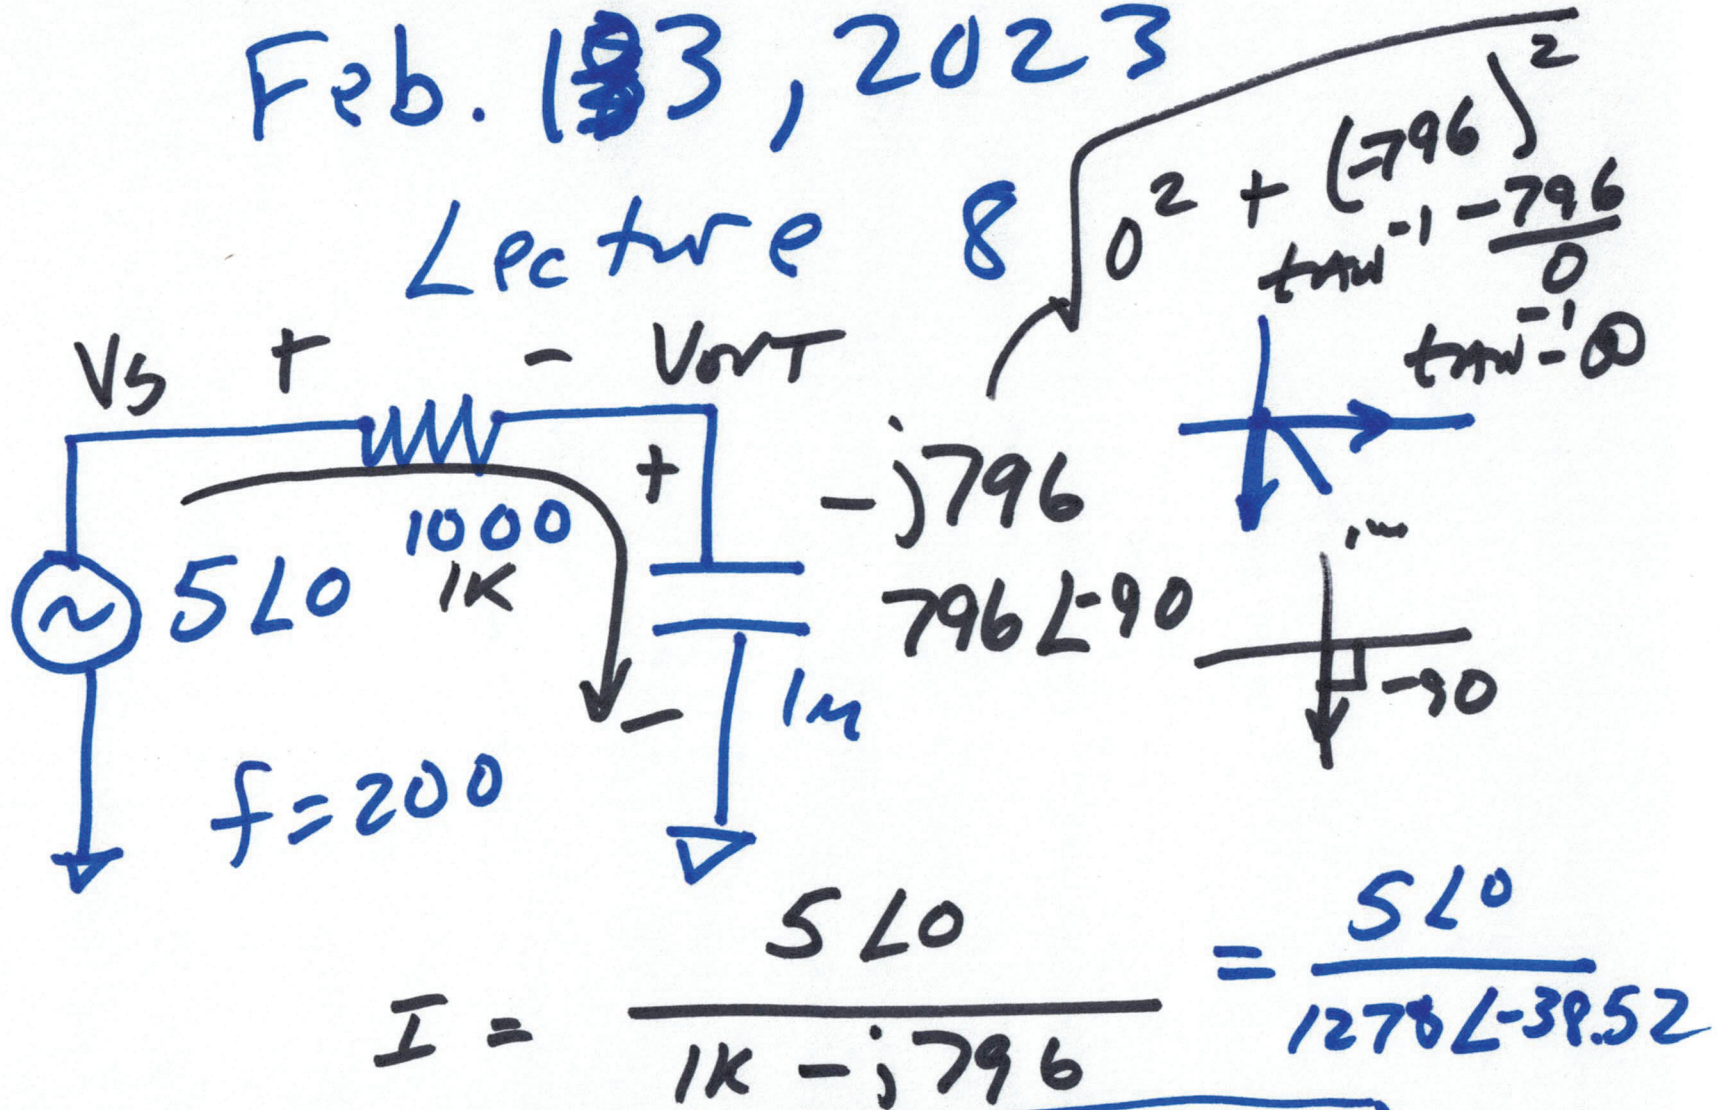 Feb. 13, 2023
Lecture 8
√0² + (-796)²
tan⁻¹ -796/0
tan⁻¹ -∞
Vs + - VOUT
+
-j796
1000
1K
5∠0
796∠-90
im
-90
- 1μ
f=200
I = 5∠0 / 1K - j796 = 5∠0 / 1278∠-38.52